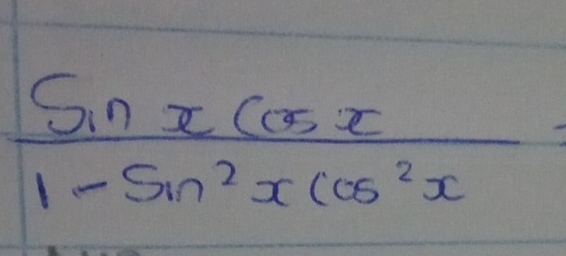 Sin x Cos x
1 - Sin² x Cos² x